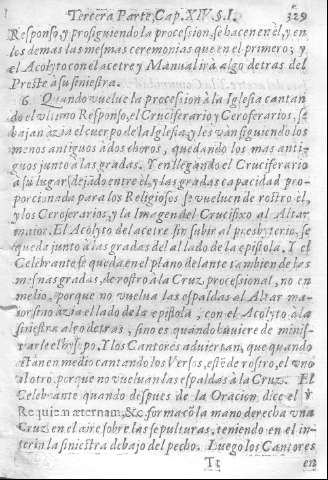 Tercera Parte, Cap. XIV. §. I. 329
Responso, y prosiguiendo la procession, se hace en el, y en
los demas las mesmas ceremonias que en el primero; y
el Acolyto con el acetre y Manual irà algo detras del
Preste à su siniestra.
6. Quando vuelue la procession à la Iglesia cantan
do el vltimo Responso, el Cruciferario y Ceroferarios, se
bajan àzia el cuerpo de la Iglesia, y les vàn siguiendo los
menos antiguos à dos choros, quedando los mas anti-
guos junto à las gradas. Y en llegando el Cruciferario
à su lugar (dejādo entre èl, y las gradas capacidad pro-
porcionada para los Religiosos) se vueluen de rostro èl,
y los Ceroferarios, y la Imagen del Crucifixo al Altar
maior. El Acolyto del acetre sin subir al presbyterio, se
queda junto à las gradas del al lado de la epistola. Y el
Celebrante se queda en el plano delante tambien de las
mesmas gradas, de rostro à la Cruz processional, no en
medio, porque no vuelua las espaldas al Altar ma-
ior sino àzia el lado de la epistola, con el Acolyto à la
siniestra algo detras, sino es quando huuiere de minis-
trarle el hysopo. Y los Cantores aduiertan, que quando
estàn en medio cantando los Versos, estē de rostro, el vno
al otro, porque no vueluan las espaldas à la Cruz. El
Celebrante quando despues de la Oracion dice el ℣
Requiem æternam, &c. forma cō la mano derecha vna
Cruz en el aire sobre las sepulturas, teniendo en el in-
terin la siniestra debajo del pecho. Luego los Cantores
Tt en